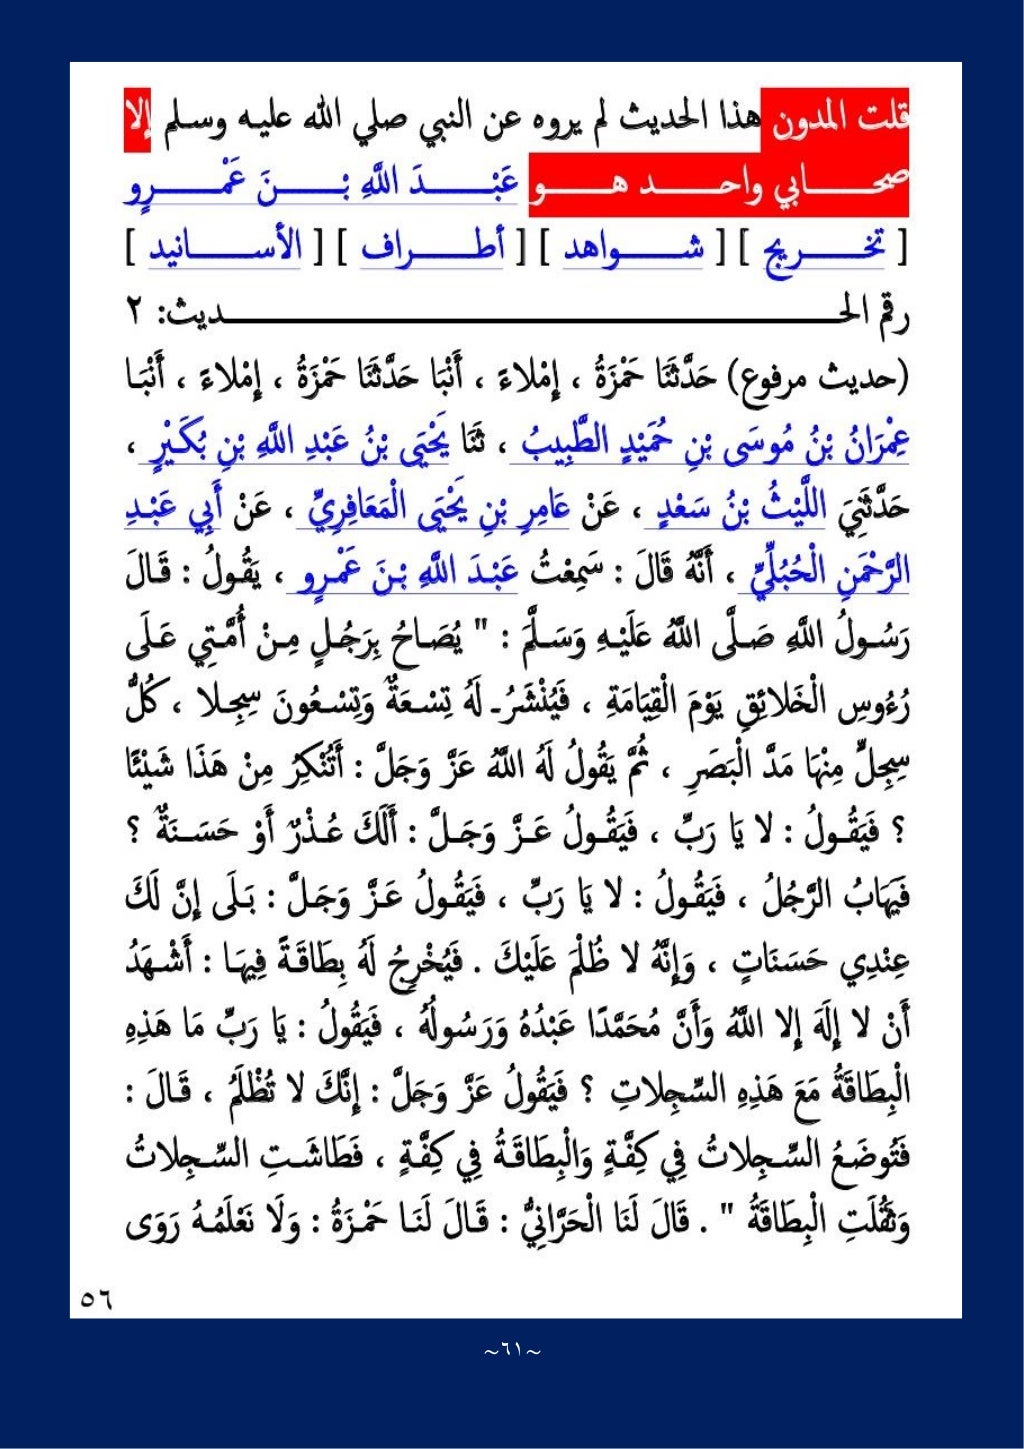 قلت المدون هذا الحديث لم يروه عن النبي صلي الله عليه وسلم إلا
صحابي واحد هو عَبْدَ اللَّهِ بْنَ عَمْرٍو
[ تخريج ] [ شواهد ] [ أطراف ] [ الأسانيد ]
رقم الحديث: ٢
(حديث مرفوع) حَدَّثَنَا حَمْزَةُ ، إِمْلاءً ، أَنْبَا حَدَّثَنَا حَمْزَةُ ، إِمْلاءً ، أَنْبَا
عِمْرَانُ بْنُ مُوسَى بْنِ حُمَيْدٍ الطَّبِيبُ ، ثَنَا يَحْيَى بْنُ عَبْدِ اللَّهِ بْنِ بُكَيْرٍ ،
حَدَّثَنِيَ اللَّيْثُ بْنُ سَعْدٍ ، عَنْ عَامِرِ بْنِ يَحْيَى الْمَعَافِرِيِّ ، عَنْ أَبِي عَبْدِ
الرَّحْمَنِ الْحُبُلِّيِّ ، أَنَّهُ قَالَ : سَمِعْتُ عَبْدَ اللَّهِ بْنَ عَمْرٍو ، يَقُولُ : قَالَ
رَسُولُ اللَّهِ صَلَّى اللَّهُ عَلَيْهِ وَسَلَّمَ : " يُصَاحُ بِرَجُلٍ مِنْ أُمَّتِي عَلَى
رُءُوسِ الْخَلائِقِ يَوْمَ الْقِيَامَةِ ، فَيُنْشَرُ لَهُ تِسْعَةٌ وَتِسْعُونَ سِجِلا ، كُلُّ
سِجِلٍّ مِنْهَا مَدَّ الْبَصَرِ ، ثُمَّ يَقُولُ لَهُ اللَّهُ عَزَّ وَجَلَّ : أَتُنْكِرُ مِنْ هَذَا شَيْئًا
؟ فَيَقُولُ : لا يَا رَبِّ ، فَيَقُولُ عَزَّ وَجَلَّ : أَلَكَ عُذْرٌ أَوْ حَسَنَةٌ ؟
فَيَهَابُ الرَّجُلُ ، فَيَقُولُ : لا يَا رَبِّ ، فَيَقُولُ عَزَّ وَجَلَّ : بَلَى إِنَّ لَكَ
عِنْدِي حَسَنَاتٍ ، وَإِنَّهُ لا ظُلْمَ عَلَيْكَ . فَيُخْرِجُ لَهُ بِطَاقَةً فِيهَا : أَشْهَدُ
أَنْ لا إِلَهَ إِلا اللَّهُ وَأَنَّ مُحَمَّدًا عَبْدُهُ وَرَسُولُهُ ، فَيَقُولُ : يَا رَبِّ مَا هَذِهِ
الْبِطَاقَةُ مَعَ هَذِهِ السِّجِلاتِ ؟ فَيَقُولُ عَزَّ وَجَلَّ : إِنَّكَ لا تُظْلَمُ ، قَالَ :
فَتُوضَعُ السِّجِلاتُ فِي كِفَّةٍ وَالْبِطَاقَةُ فِي كِفَّةٍ ، فَطَاشَتِ السِّجِلاتُ
وَثَقُلَتِ الْبِطَاقَةُ " . قَالَ لَنَا الْحَرَّانِيُّ : قَالَ لَنَا حَمْزَةُ : وَلَا نَعْلَمُهُ رَوَى
٥٦
~٦١~